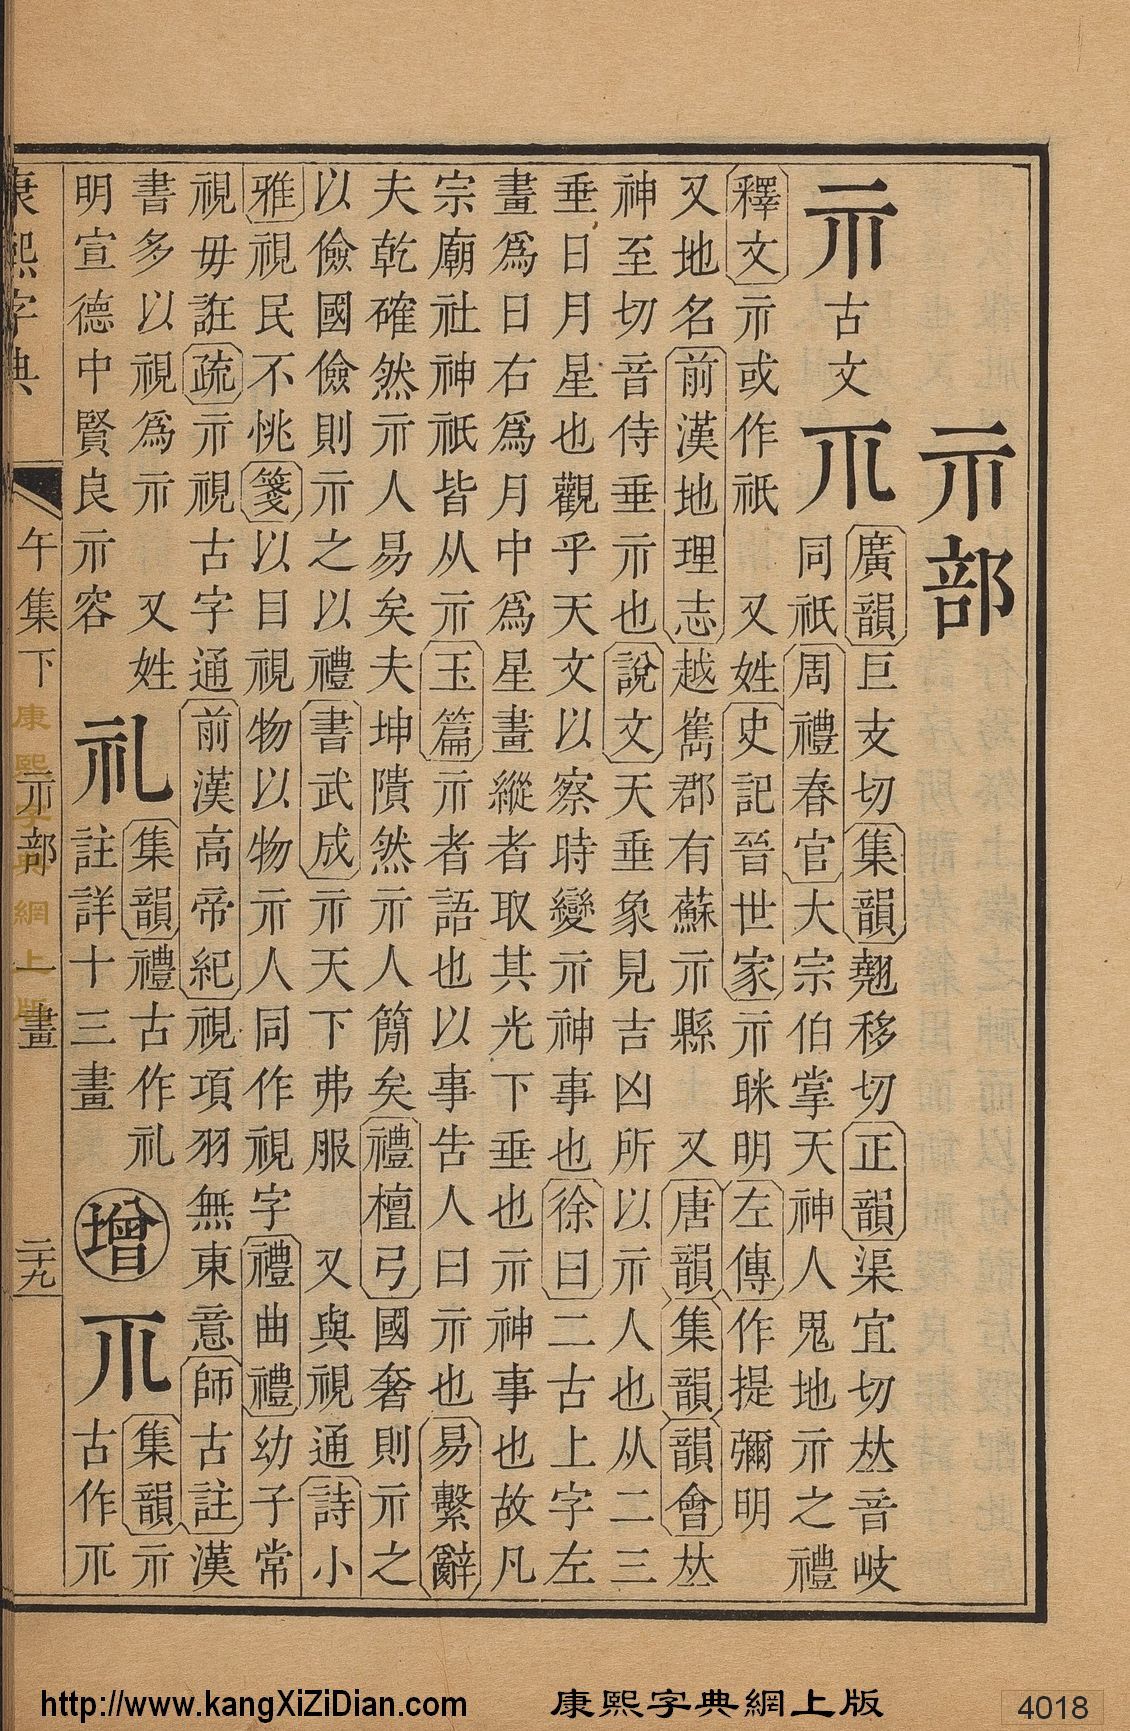 示部
示古文𠀁
廣韻巨支切集韻翹移切正韻渠宜切𠀤音岐
同祇周禮春官大宗伯掌天神人鬼地示之禮
釋文示或作祇 又姓史記晉世家示眯明左傳作提彌明
又地名前漢地理志越雋郡有蘇示縣 又唐韻集韻韻會𠀤
神至切音侍垂示也說文天垂象見吉凶所以示人也从二三
垂日月星也觀乎天文以察時變示神事也徐曰二古上字左
畫爲日右爲月中爲星畫縱者取其光下垂也示神事也故凡
宗廟社神祇皆从示玉篇示者語也以事告人曰示也易繫辭
夫乾確然示人易矣夫坤隤然示人簡矣禮檀弓國奢則示之
以儉國儉則示之以禮書武成示天下弗服 又與視通詩小
雅視民不恌箋以目視物以物示人同作視字禮曲禮幼子常
視毋誑疏示視古字通前漢高帝紀視項羽無東意師古註漢
書多以視爲示 又姓
明宣德中賢良示容
礼
集韻禮古作礼
註詳十三畫
增
𠀁
集韻示
古作𠀁
康熙字典
午集下
示部
一畫
二十九
康熙字典網上版
http://www.kangXiZiDian.com
康熙字典網上版
4018